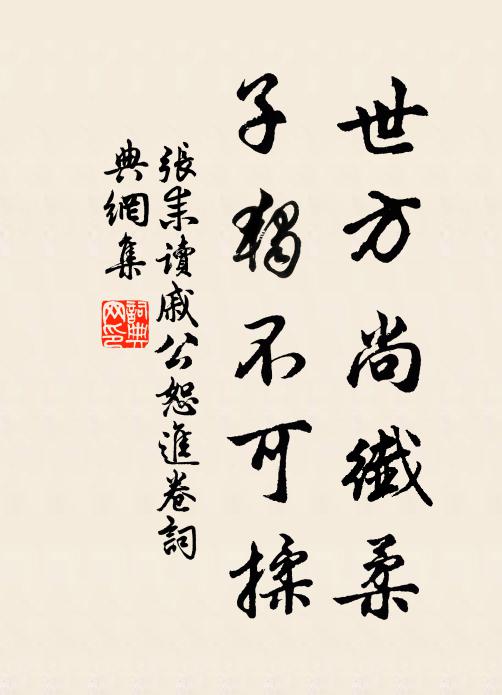 世方尚纖柔
子獨不可揉
張耒讀戚公恕進卷詞
典網集
詞典網印